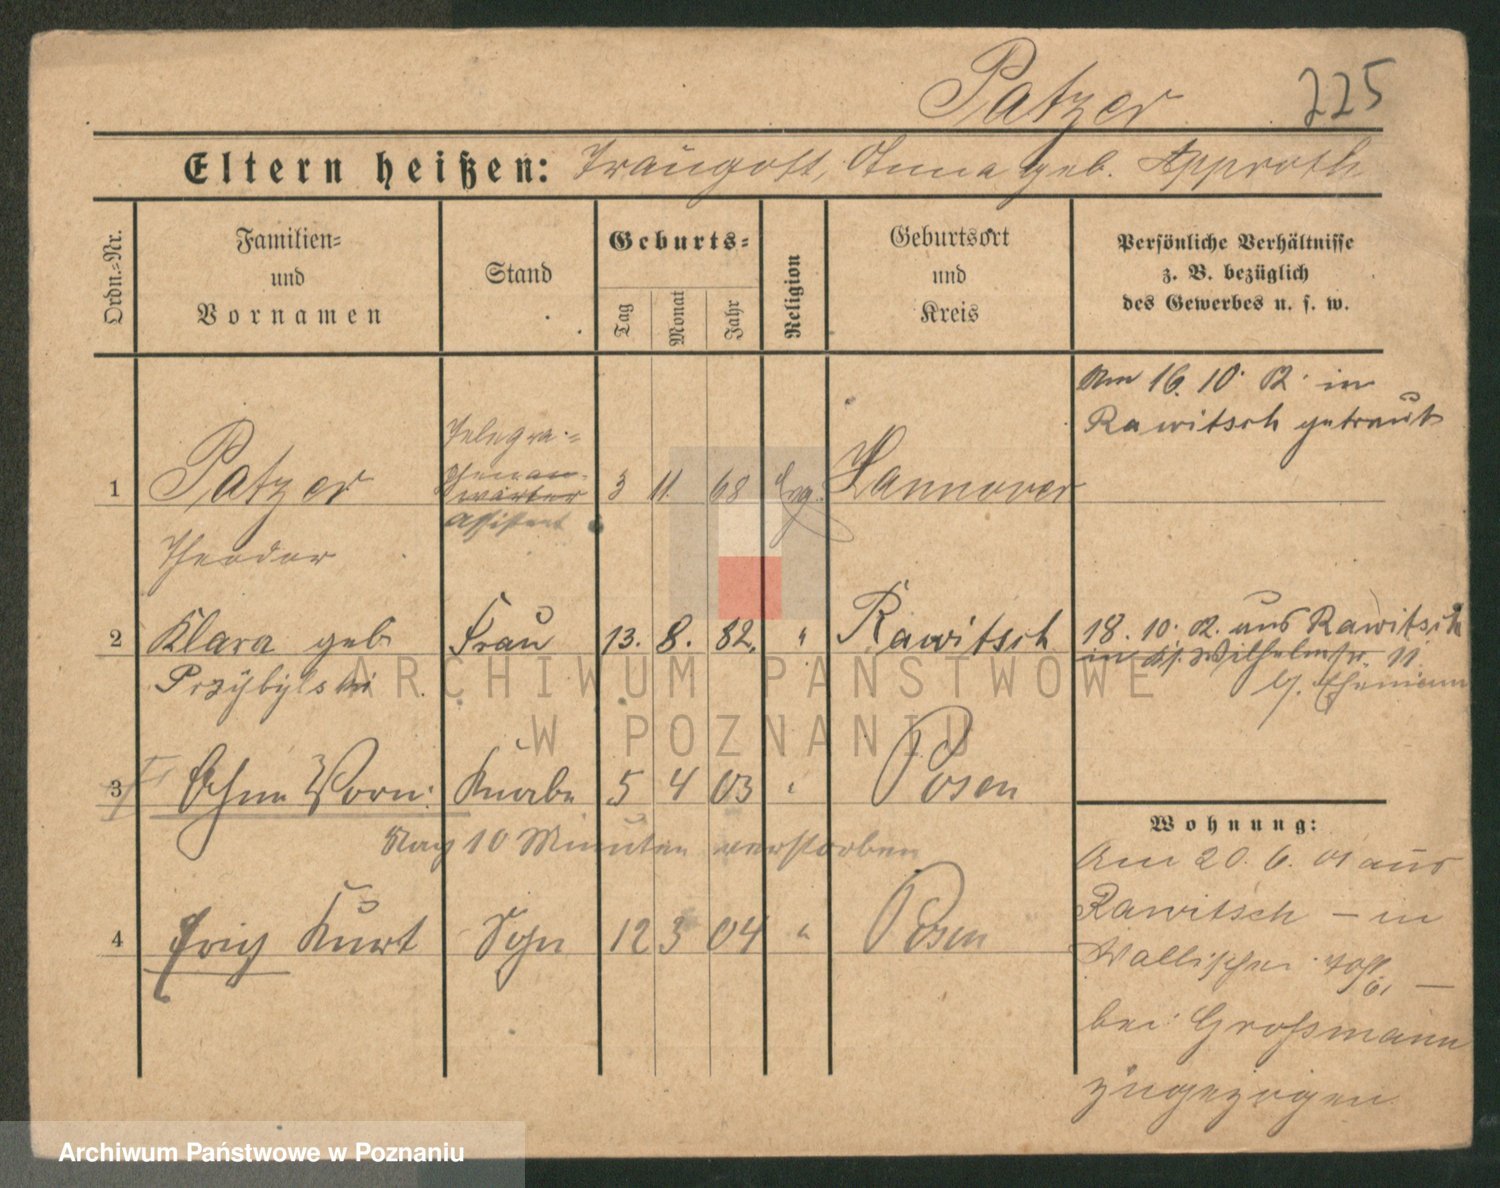 Patzer 225
Eltern heißen: Traugott, Anna geb. Approth
Ordn.-Nr.
Familien-
und
Vornamen
Stand
Geburts-
Tag
Monat
Jahr
Religion
Geburtsort
und
Kreis
Persönliche Verhältnisse
z. B. bezüglich
des Gewerbes u. s. w.
Am 16. 10. 02. in
Rawitsch getraut
Telegra-
1 Patzer 3 11. 68 Evg. Hannover
Assistent
Theodor
2 Klara geb. Frau 13. 8. 82. " Rawitsch
Przybylski
18. 10. 02. aus Rawitsch
in Wilhelmstr. 11
z. Ehemann
3 Ohne Vorn. Knabe 5 4 03 " Posen
Nach 10 Minuten verstorben
4 Erich Kurt Sohn 12 3 04 " Posen
Wohnung:
Am 20. 6. 01 aus
Rawitsch – in
Wallischei –
bei Großmann
zugezogen
ARCHIWUM PAŃSTWOWE
W POZNANIU
Archiwum Państwowe w Poznaniu